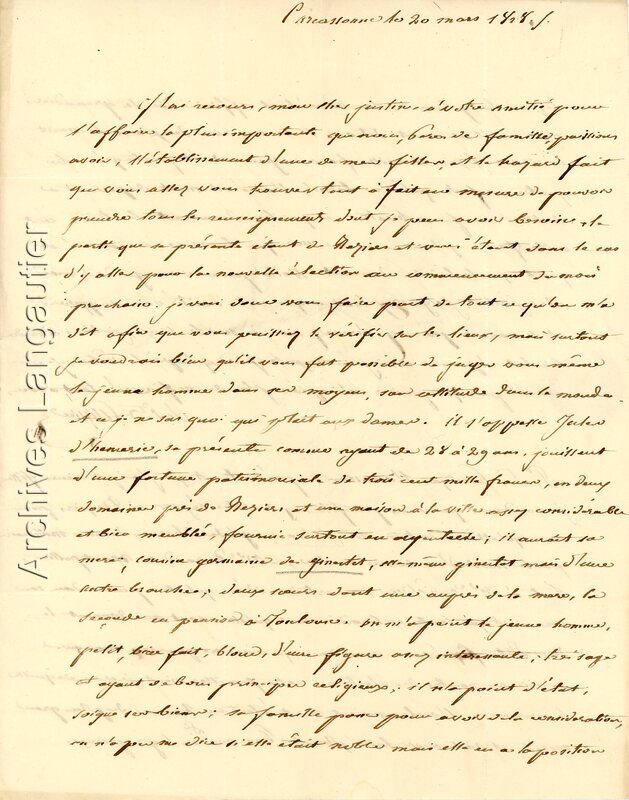 Carcassonne le 20 mars 1828./.
J'ai recours, mon cher justin, à votre amitié pour
l'affaire la plus importante que nous, pères de famille, puissions
avoir, l'établissement d'une de mes filles, et le hazard fait
que vous allez vous trouver tout à fait en mesure de pouvoir
prendre tous les renseignements dont je peux avoir besoin, le
parti qui se présente étant de Beziers et vous étant dans le cas
d'y aller pour la nouvelle élection au commencement du mois
prochain. je vais donc vous faire part de tout ce qu'on m'a
dit afin que vous puissiez le vérifier sur les lieux, mais surtout
je voudrois bien qu'il vous fut possible de juger vous même
le jeune homme dans ses moyens, son attitude dans le monde
et ce je ne sais quoi qui plait aux dames. il s'appelle Jules
d'hemeric, se présente comme ayant de 28 à 29 ans, jouissant
d'une fortune patrimoniale de trois cent mille francs, en deux
domaines près de Beziers, et une maison à la ville assez considérable
et bien meublée, fournie surtout en argenterie; il aurait sa
mere, cousine germaine de ginestet, née même ginestet mais d'une
autre branche; deux sœurs dont une auprès de la mere, la
seconde en pension à Toulouse. on m'a peint le jeune homme,
petit, bien fait, blond, d'une figure assez intéressante; très sage
et ayant de bons principes religieux; il n'a point d'état,
soigne ses biens; sa famille passe pour avoir de la considération,
on n'a pu me dire si elle était noble mais elle en a la position
Archives Langautier